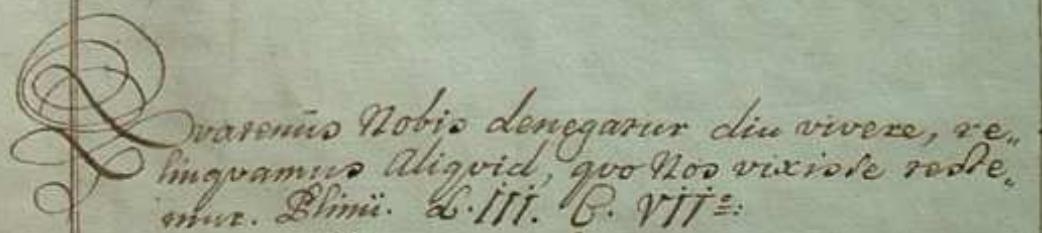 Qvatenus Nobis denegatur diu vivere, re„
linqvamus Aliqvid, qvo Nos vixisse teste„
mur. Plinii. L. III. C. VII º: